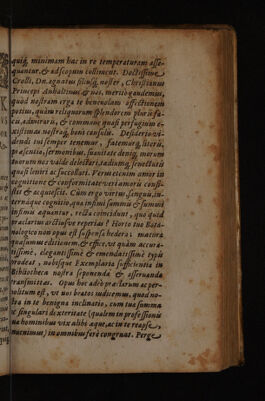 quiq, minimam hac in re temperaturam asse-
quantur, & ad scopum collinent. Doctissime
Crolli, Dn. agnatus filiusq; noster, Christianus
Princeps Anhaltinus & nos, meritò gaudemus,
quod nostram erga te benevolam affectionem
potius, quàm reliquorum splendorem pluris fa-
cis, admiraris, & commune quasi perfugium e-
tissimae nostraeq; boni consulis. Desiderio vi-
dendi tui semper tenemur, fatemurq; literis,
praesentia, sermonibus, suavitate deniq; morum
tuorum nos valde delectari, taediumq; senectutis
quasi leniri ac suffocari. Verus etenim amor in
cognitione & conformitate veri amoris consi-
stit & acquiescit. Cùm ergo virtus, sanguis, in-
ternáque cognitio, qua infimi summis & summi
infimis aquantur, recta coincidunt, quo quid
praeclarius arctiusve reperias? Horto tuo Bota-
nologico non opus est suspensa hedera: macturà
quaesumus editionem, & effice, ut quàm accura-
tissimè, elegantissimè & emendatissimè typis
prodeat, nobisque Exemplaria sufficientia in
Bibliotheca nostra reponenda & asservanda
transmittas. Opus hoc adeò praeclarum ac per-
politum est, ut nos beatos iudicemus, quod no-
stra in te benigna inclinatio, cum tua summa
& singulari dexteritate (qualem in professioni-
na hominibus vix alibi aque, ac in te reapse,
invenimus) in omnibus ferè congruat. Perge